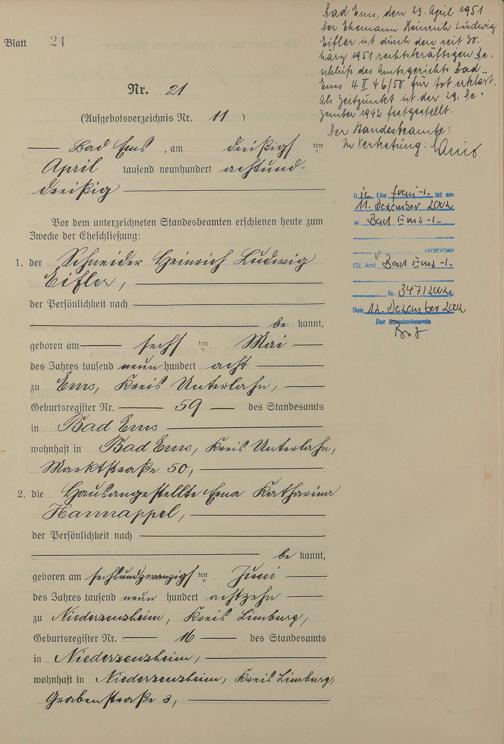 Blatt 21
Bad Ems, den 23. April 1951
Der Ehemann Heinrich Ludwig
Eifler ist durch den seit 30.
März 1951 rechtskräftigen Be-
schluß des Amtsgerichts Bad-
Ems 4 II 46/50 für tot erklärt.
Als Zeitpunkt ist der 29. De-
zember 1942 festgestellt.
Der Standesbeamte:
In Vertretung:
Nr. 21
(Aufgebotsverzeichnis Nr. 11)
Bad Ems, am dreißigsten
April tausend neunhundert achtund-
dreißig
Vor dem unterzeichneten Standesbeamten erschienen heute zum
Zwecke der Eheschließung:
1. der Schneider Heinrich Ludwig
Eifler,
der Persönlichkeit nach
be kannt,
geboren am sechsten Mai
des Jahres tausend neun hundert acht
zu Ems, Kreis Unterlahn,
Geburtsregister Nr. 59 des Standesamts
in Bad Ems
wohnhaft in Bad Ems, Kreis Unterlahn,
Marktstraße 50,
2. die Hausangestellte Erna Katharina
Hannappel,
der Persönlichkeit nach
be kannt,
geboren am sechsundzwanzigsten Juni
des Jahres tausend neun hundert achtzehn
zu Niederzeuzheim, Kreis Limburg,
Geburtsregister Nr. 16 des Standesamts
in Niederzeuzheim,
wohnhaft in Niederzeuzheim, Kreis Limburg,
Grabenstraße 3,
Die Ehefrau -1- ist am
11. Dezember 2002
in Bad Ems -1-
verstorben
(St. Amt Bad Ems -1-
Nr. 347/2002)
Den 12. Dezember 2002
Der Standesbeamte